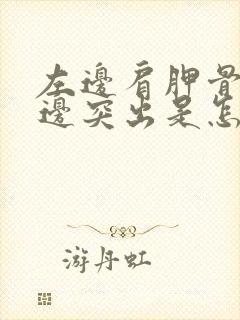 左邊肩胛骨
邊突出是怎
游丹虹